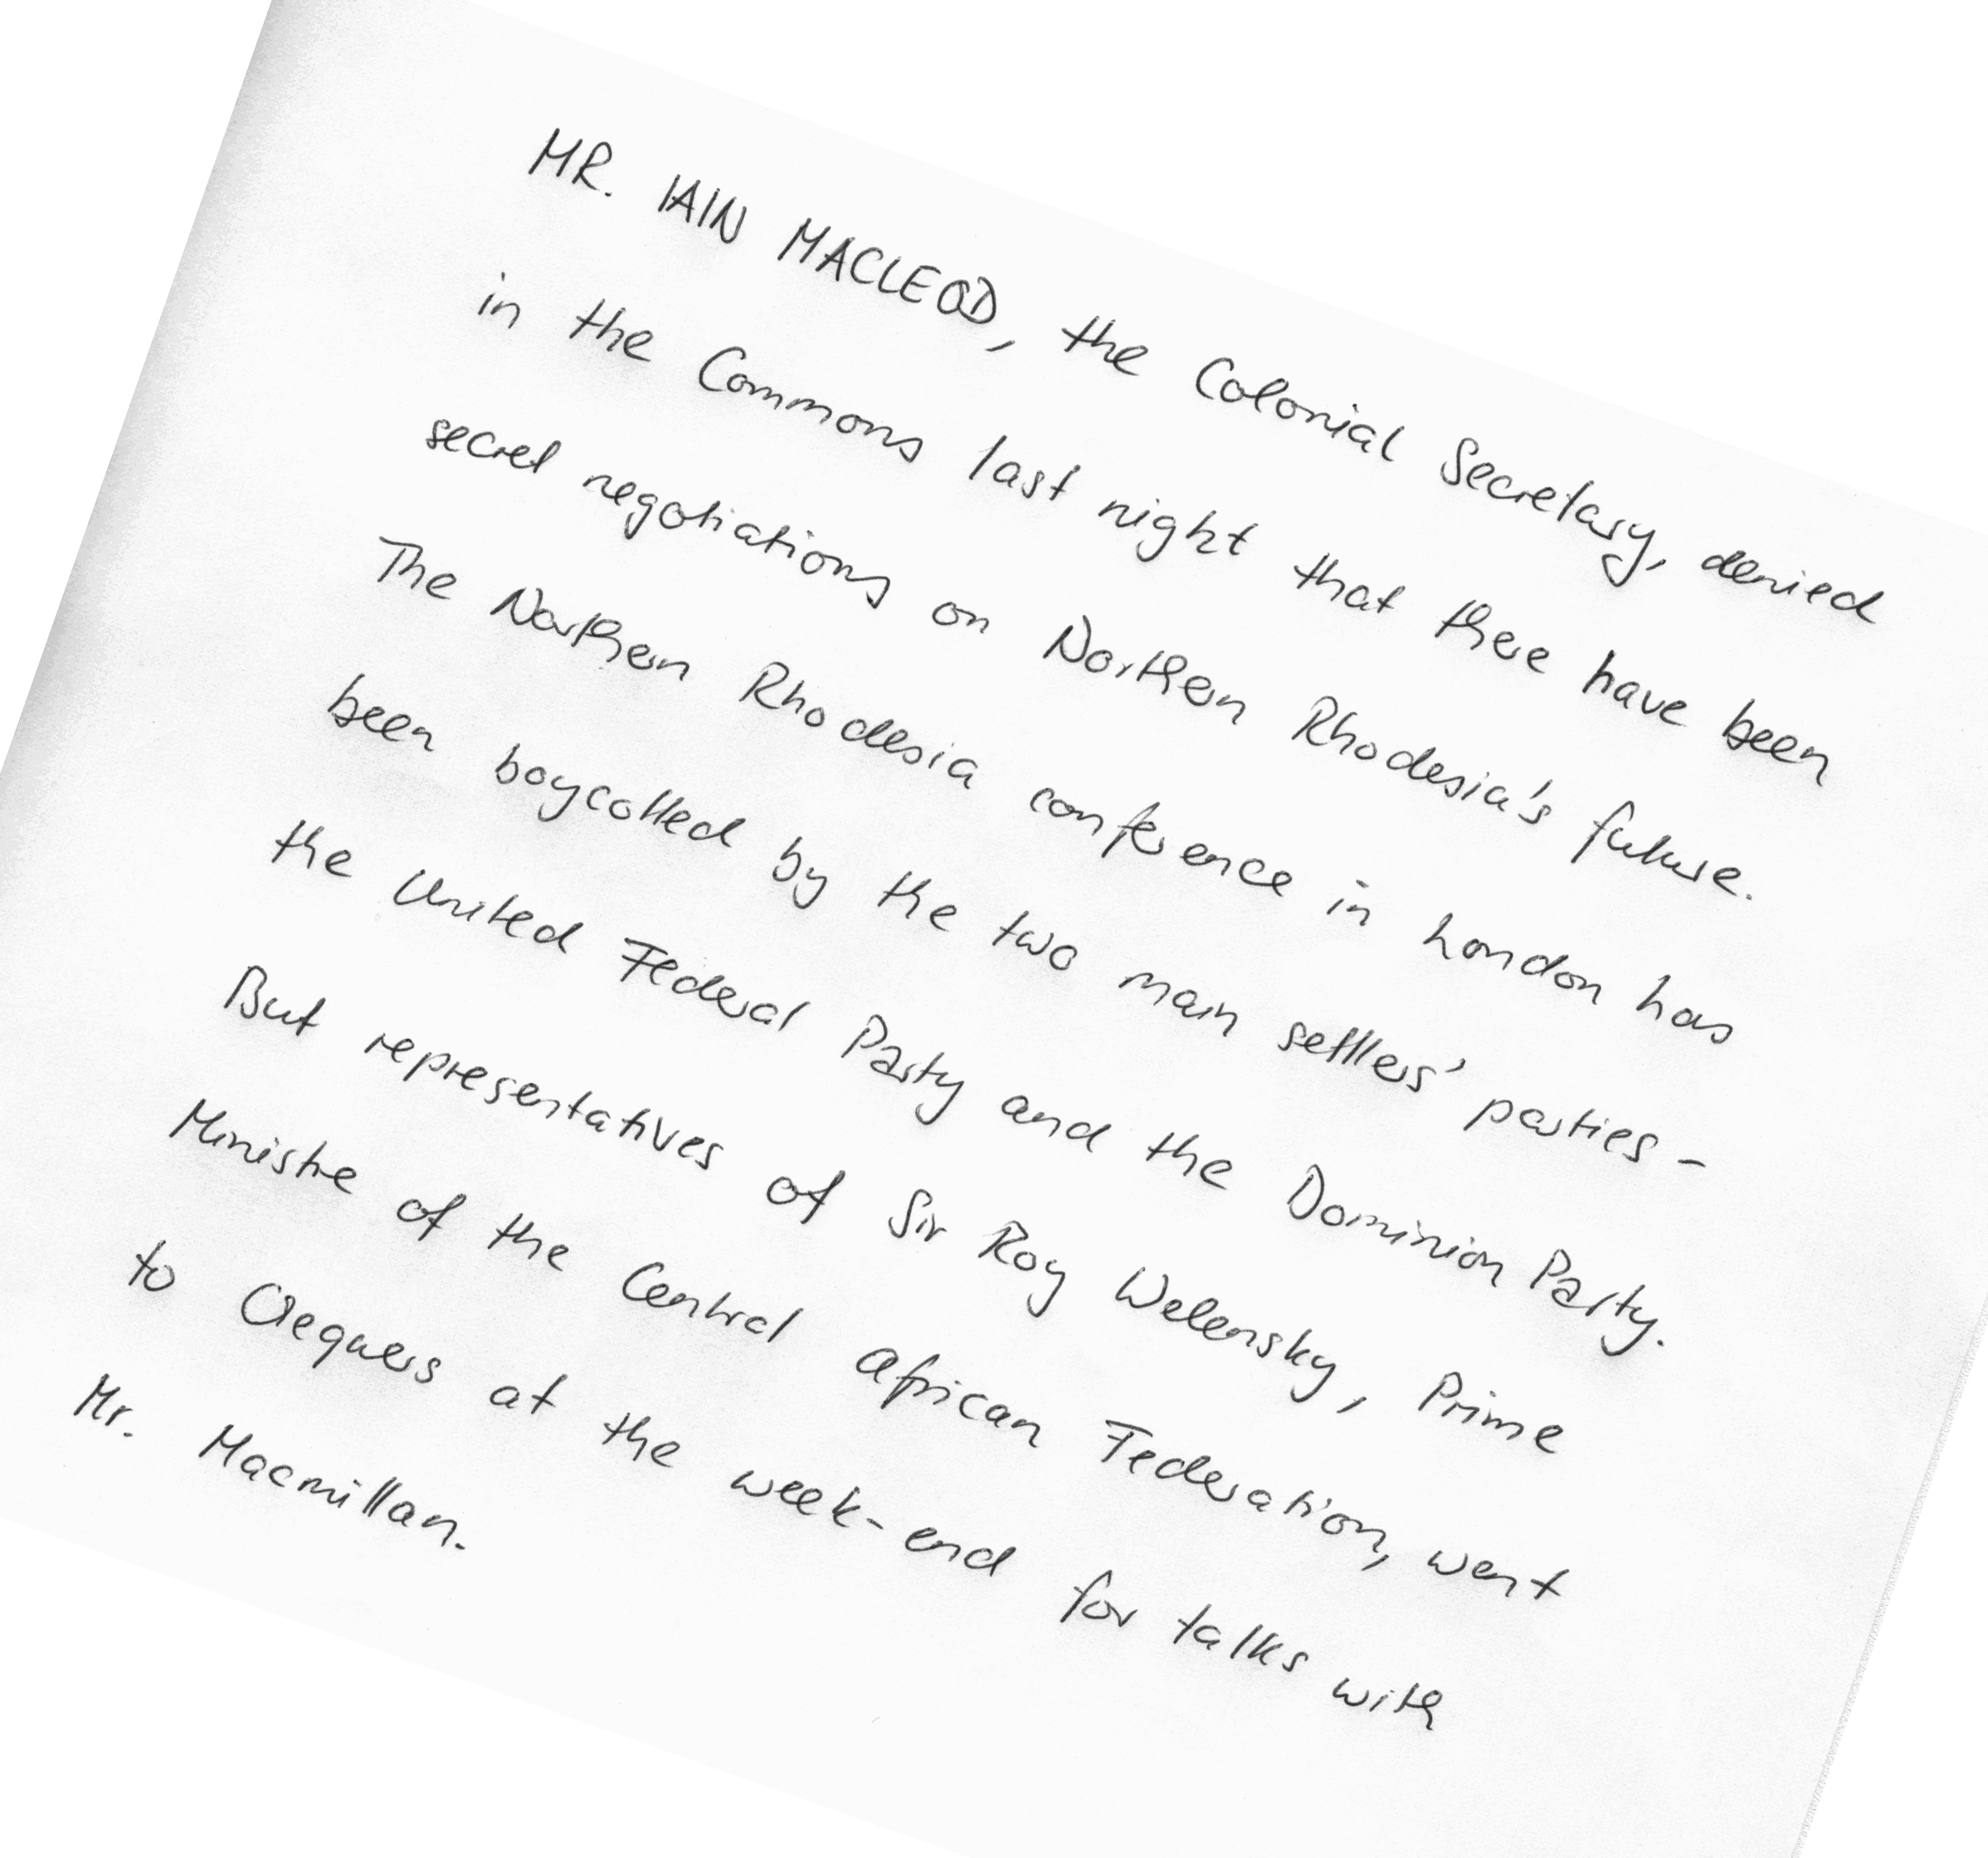 MR. IAIN MACLEOD, the Colonial Secretary, denied
in the Commons last night that there have been
secret negotiations on Northern Rhodesia's future.
The Northern Rhodesia conference in London has
been boycotted by the two main settlers' parties -
the United Federal Party and the Dominion Party.
But representatives of Sir Roy Welensky, Prime
Ministre of the Central African Federation, went
to Cheqners at the week-end for talks with
Mr. Macmillan.